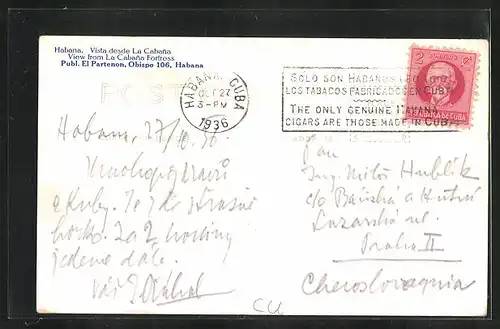 Habana. Vista desde La Cabaña
View from La Cabaña Fortress
Publ. El Partenon, Obispo 106, Habana
POST
HABANA, CUBA
OCT 27
3-PM
1936
SOLO SON HABANOS
LOS TABACOS FABRICADOS EN CUBA
THE ONLY GENUINE HAVANA
CIGARS ARE THOSE MADE IN CUBA
Habana, 27/
z Kuby. Je zde strašné
horko. Za 2 hodiny
jedeme dále.
Váš
Pan
Ing. Miloš Hublík
c/o Báňská a Hutní
Lazarská ul.
Praha II
CU